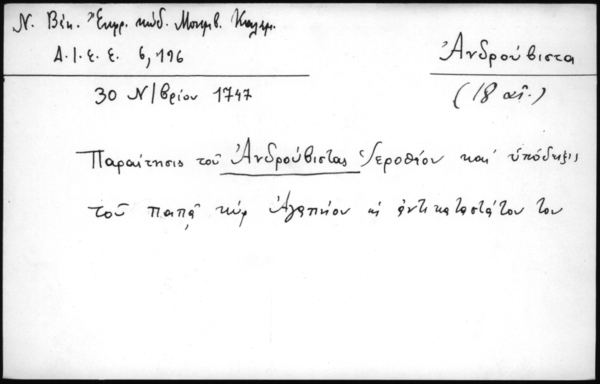 Ν. Βέη. Ἔκφρ. κώδ. Μονεμβ. Καλαμ.
Δ.Ι.Ε.Ε. 6, 196
Ἀνδρούβιστα
30 Ν/βρίου 1747
(18 αἰ.)
Παραίτησις τοῦ Ἀνδρούβιστας Ἱεροθέου καὶ ὑπόδειξις
τοῦ παπᾶ κὺρ Ἀγαπίου ὡς ἀντικαταστάτου του